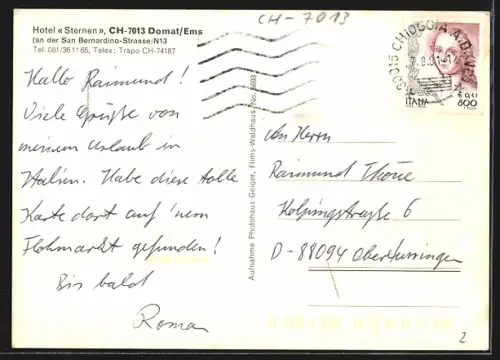 CH-7013
Hotel «Sternen», CH-7013 Domat/Ems
(an der San Bernardino-Strasse/N13
Tel. 081/36 11 65, Telex: Trapo CH-74187
30015 CHIOGGIA A.D. (VE)
7.8.01
ITALIA
€ 0,41
800
Hallo Raimund!
Viele Grüße von
meinem Urlaub in
Italien. Habe diese tolle
Karte dort auf 'nem
Flohmarkt gefunden!
Bis bald
Roman
Aufnahme Photohaus Geiger, Flims-Waldhaus (No.
An Herrn
Raimund Thöne
Kolpingstraße 6
D-88094 Oberteuringen
2